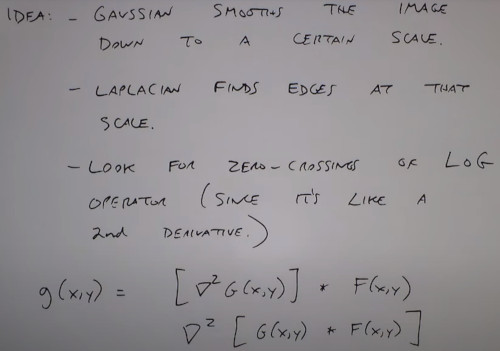 IDEA: - GAUSSIAN SMOOTHS THE IMAGE
DOWN TO A CERTAIN SCALE.
- LAPLACIAN FINDS EDGES AT THAT
SCALE.
- LOOK FOR ZERO-CROSSINGS OF LOG
OPERATOR (SINCE IT'S LIKE A
2nd DERIVATIVE.)
g(x,y) = [∇²G(x,y)] * F(x,y)
∇² [G(x,y) * F(x,y)]